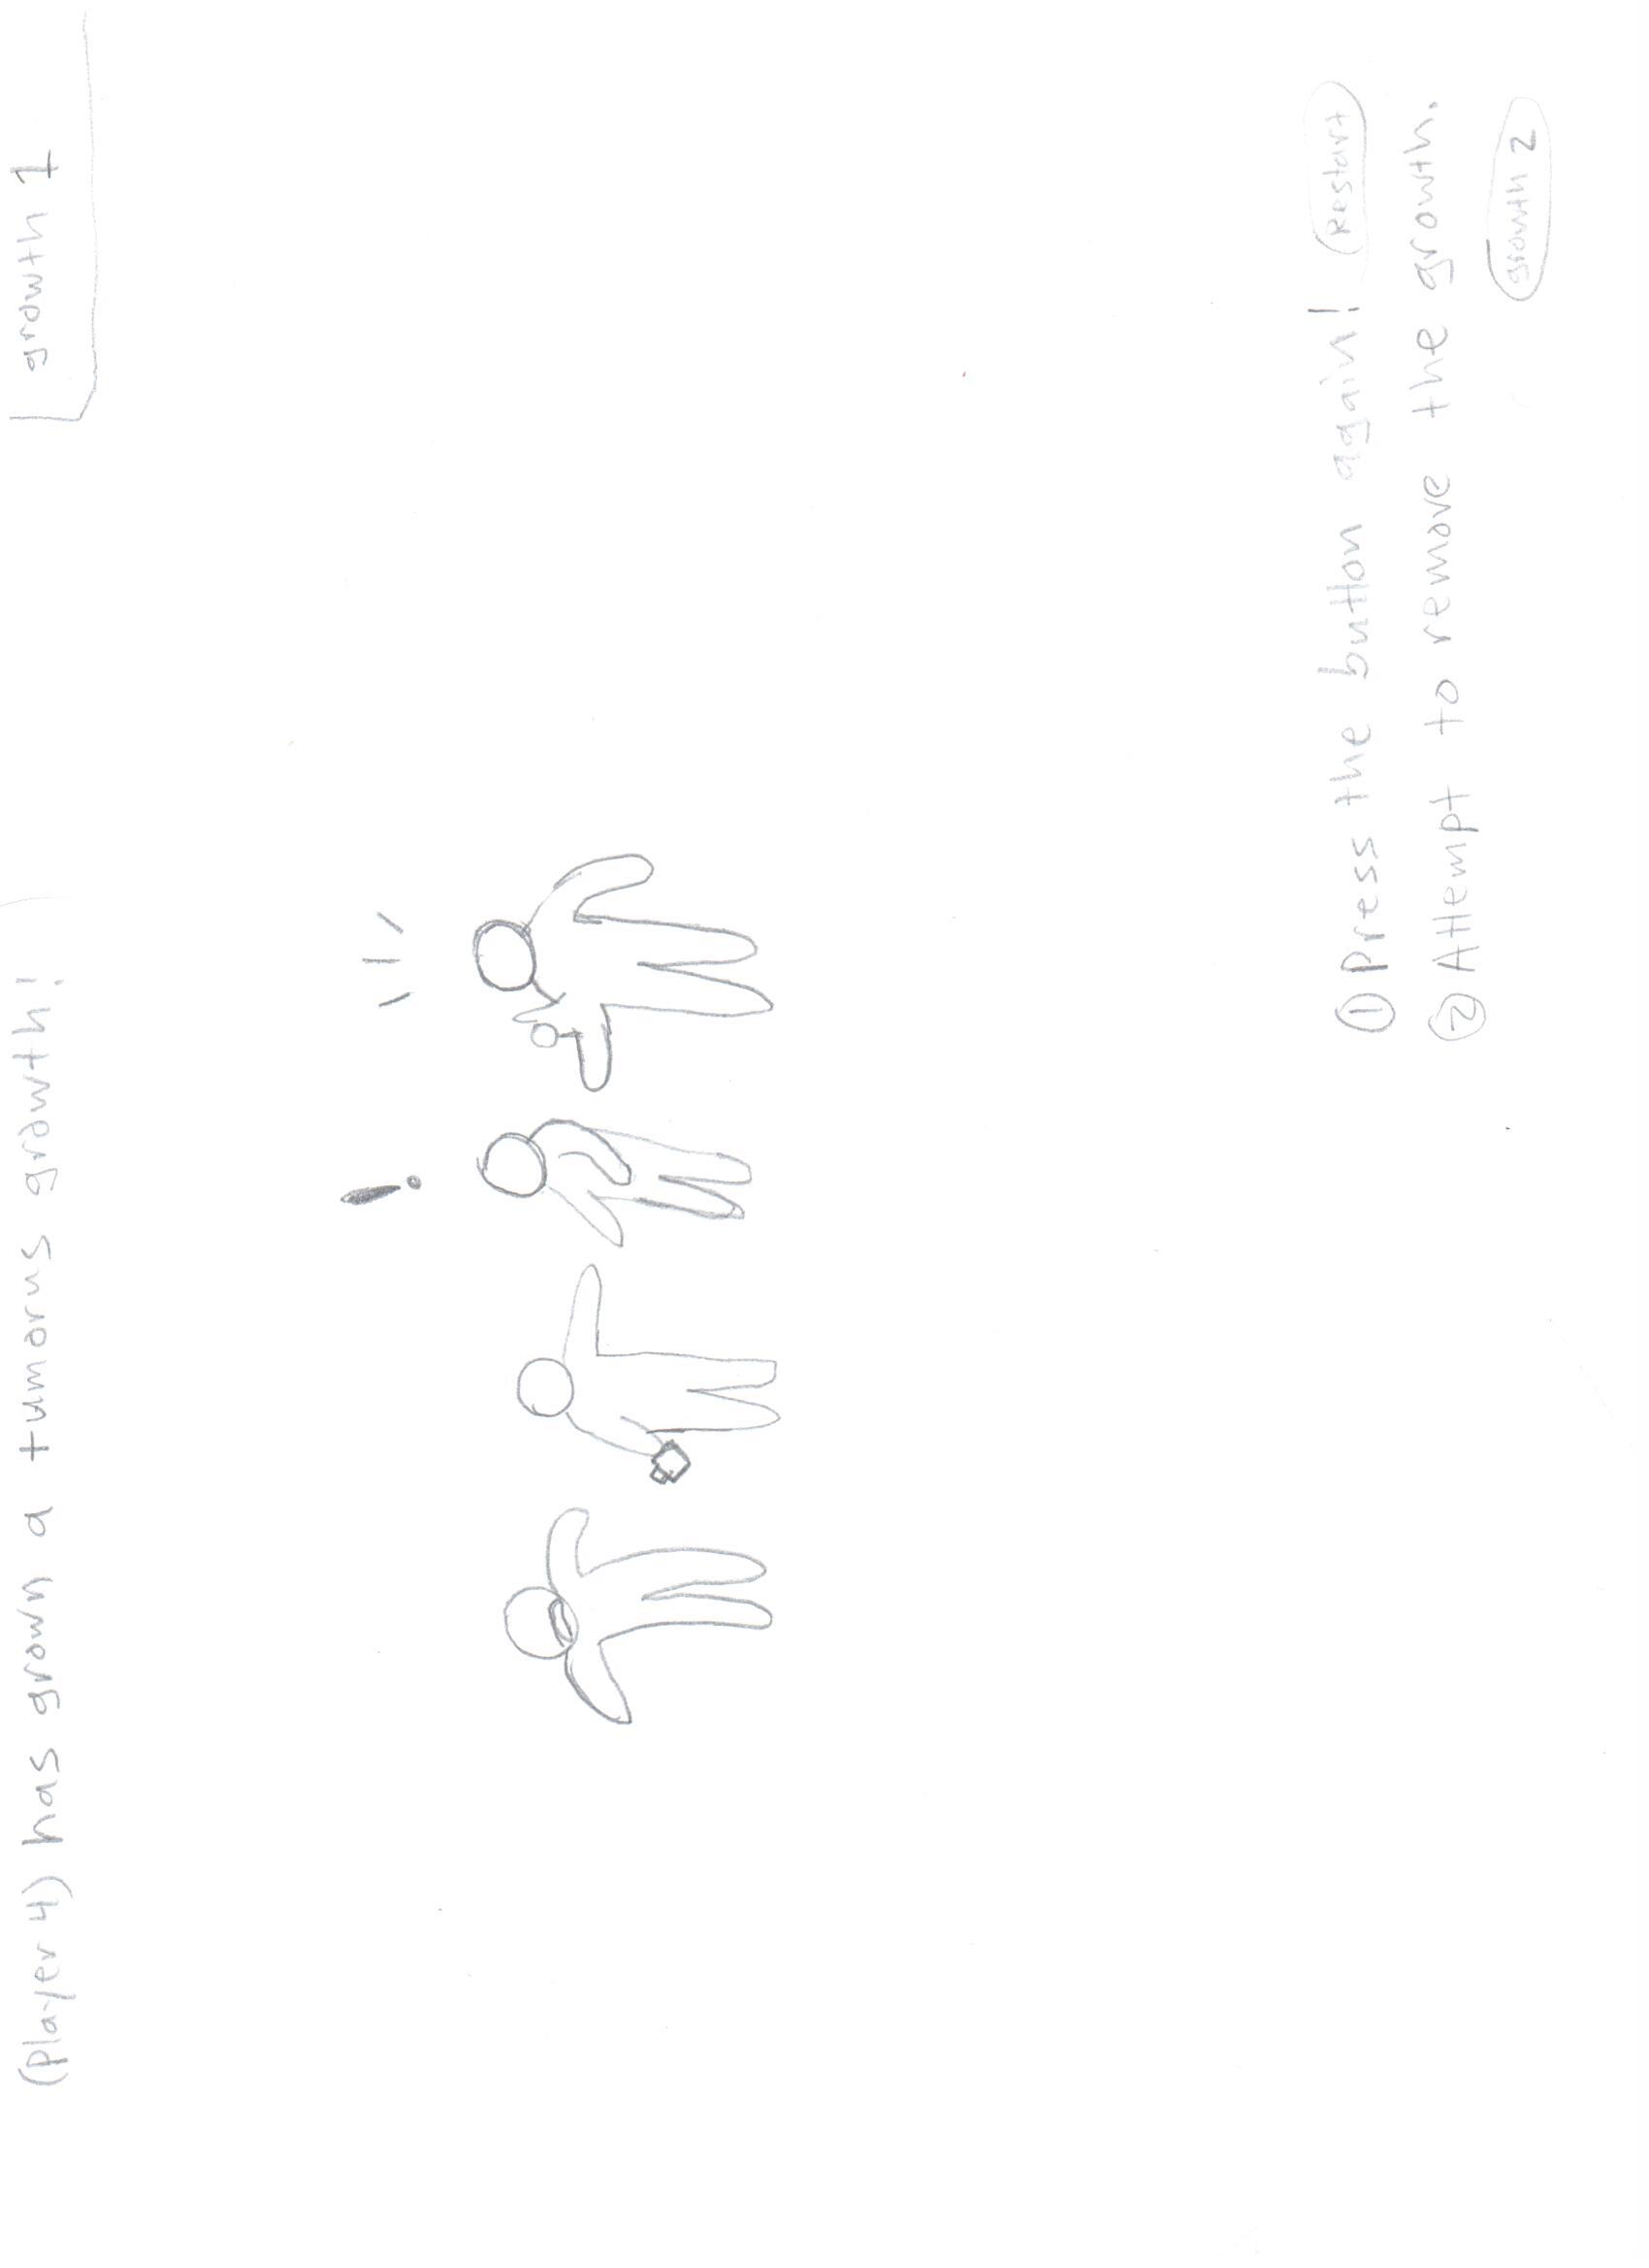 growth 1
(player 4) has grown a tumorus growth!
① Press the button again! Restart
② Attempt to remove the growth.
growth 2